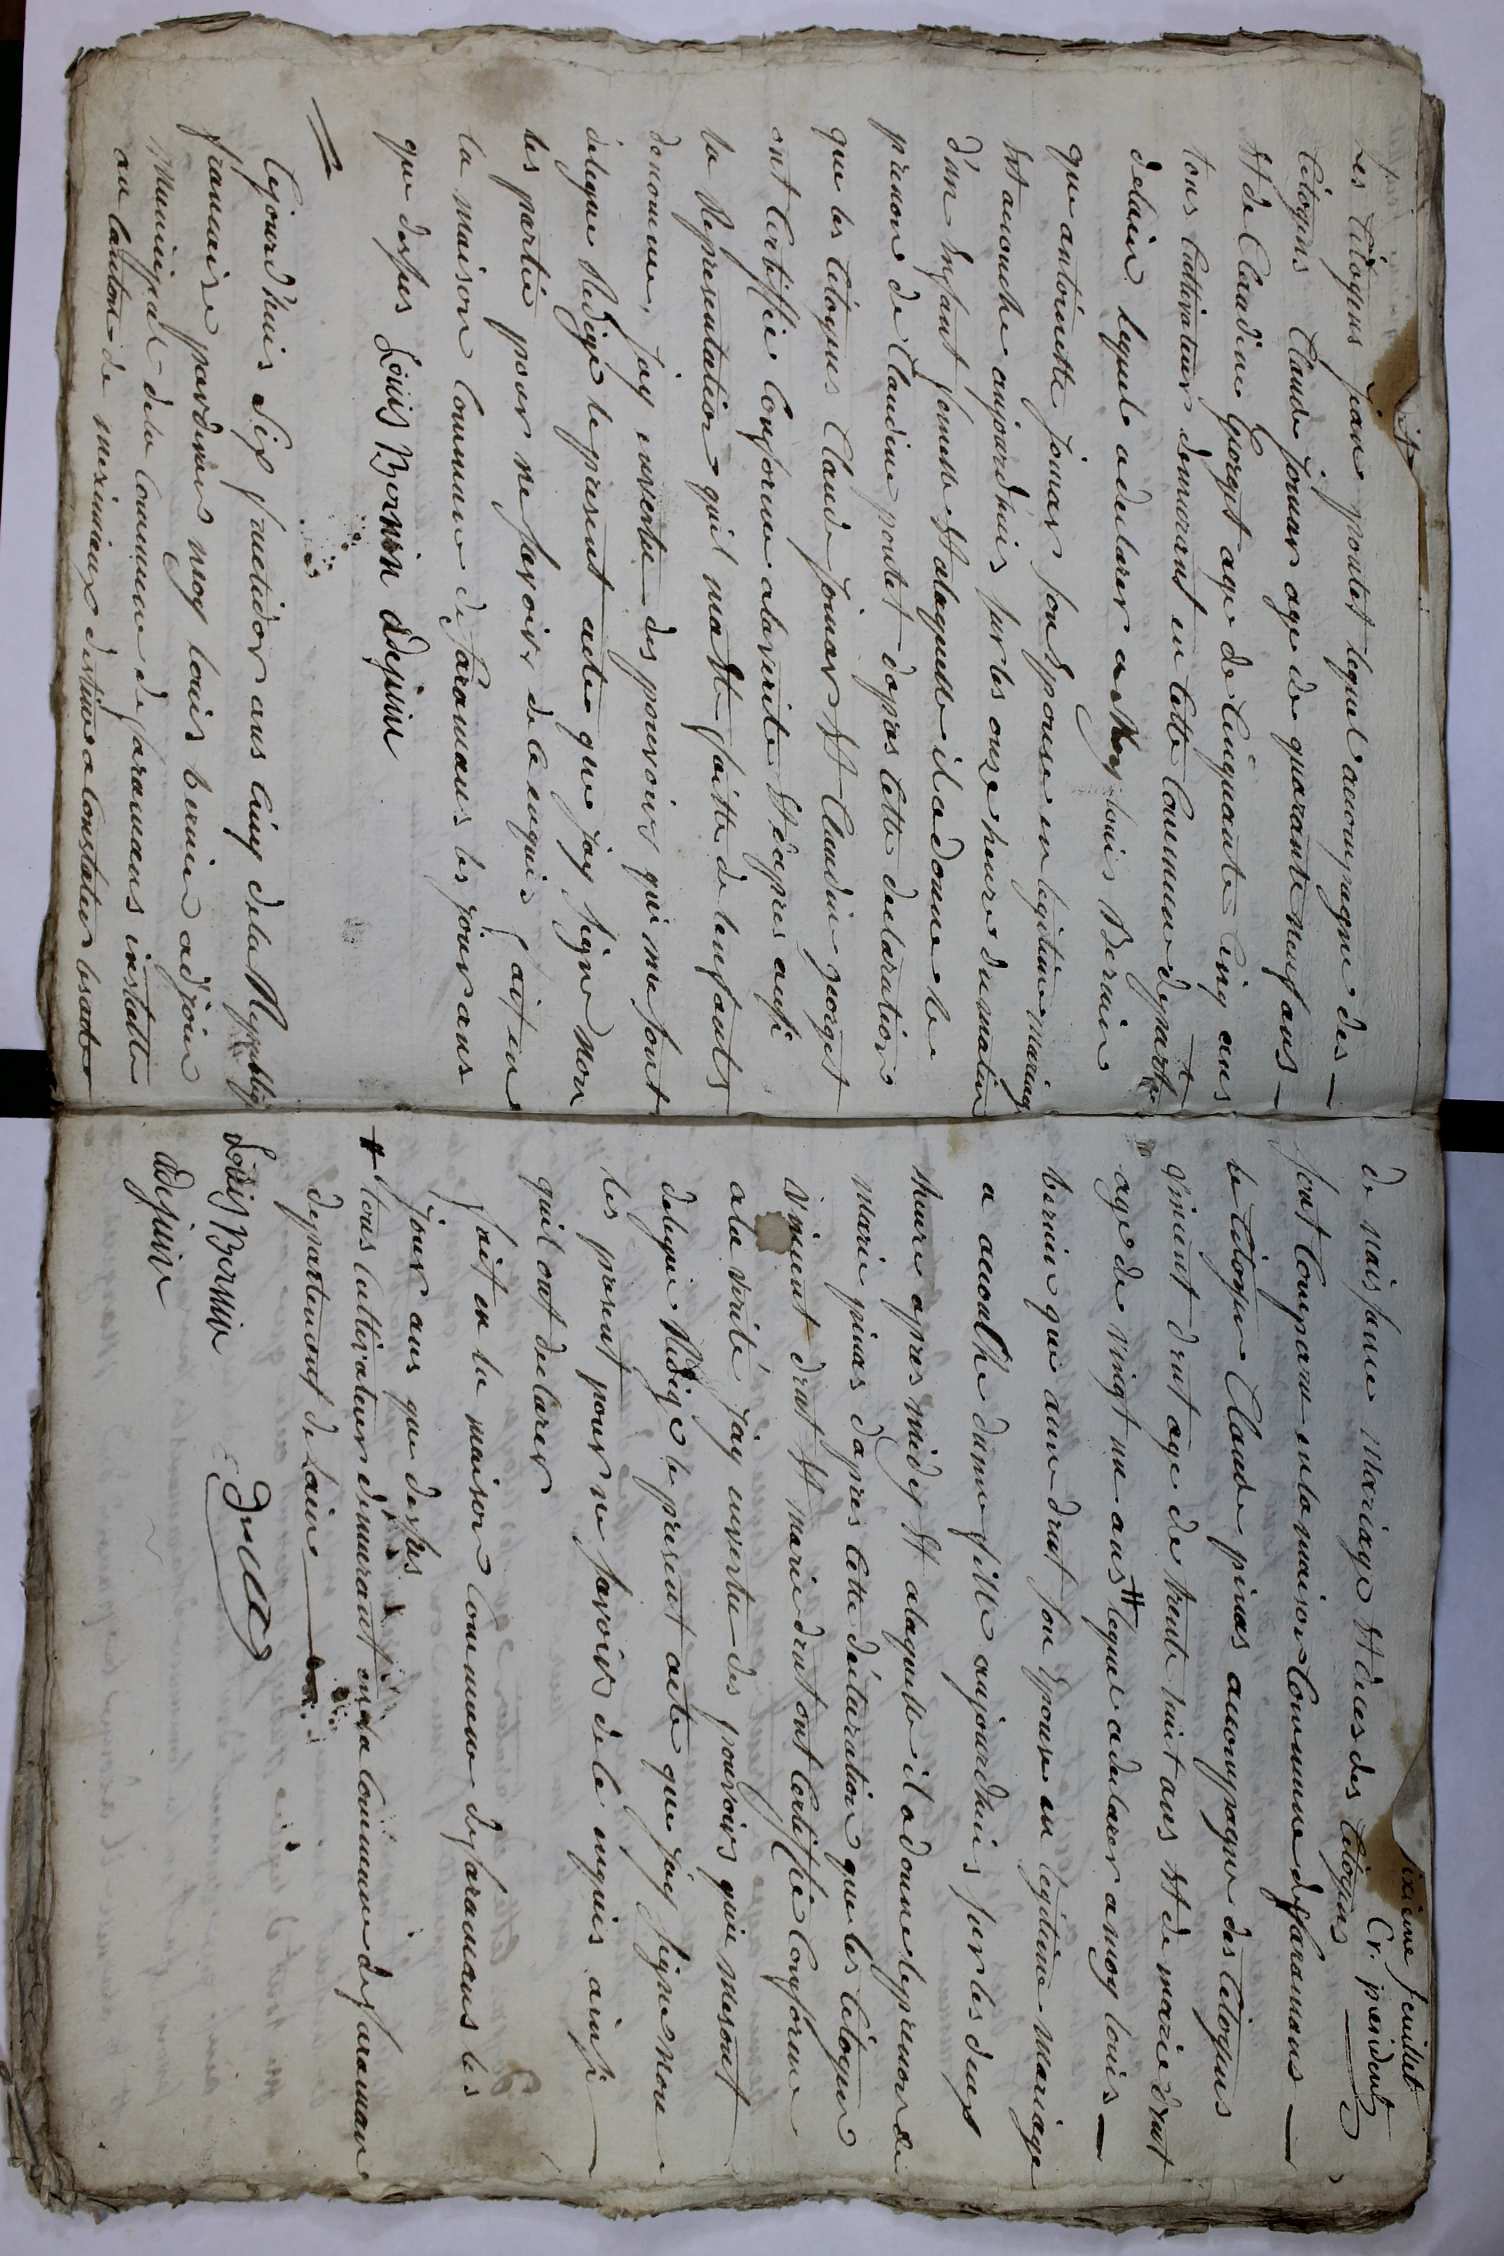 Les Citoyens jean poulet lequel accompagne des
Citoyens Claude jouvar age de quarante neuf ans
Et de Claudine Gorget age de Cinquante Cinq ans
tous Cultivateur demeurant en Cette Commune departt
delain lequele a declarer a Moy louis Bernin
que antoinette jouvar son Epouse en legitime mariage
Est acouche aujourdhuis sur les onze heure du matin
d'un Enfant femelle Et alaquelle il a donne le
prenon de Claudine poulet dapres Cette declaration
que les Citoyens Claude jouvar Et Claudine georget
ont Certiffie Conforme alaverite Et d'apres aussi
la Representation quil ma Ete faitte de lenfants
denomme, jay envertu des pouvoirs qui me sont
delegue Redige le present acte que jay signe non
les partie pour ne savoir de ce enquis fait en
la maison Commune de faramans les jour ans
que dessus Louis Bernin adejoin
Cejourd'huis Six fructidor ans Cinq dela Republiq
francaise pardevans moy louis bernin adjoin
Municipal dela Commune de faramans installe
au Canton de meximieux destine a Constater les acte
sixieme feuillet
Cr. president
de Naissance Mariage Et deces des Citoyens
sont Comparu en la maison Commune de faramans
le Citoyen Claude pinas accompagne des Citoyens
vincent drut age de trente huit ans Et de marie drut
age de vingt un ans # lequel a declarer a moy louis
bernin que anne drut son Epouse en legitime mariage
a acouche dunne fille aujourdhuis sur les deux
heure apres midy Et alaquelle il a donne le prenon de
marie pinas dapres Cette declaration que les Citoyen
vincent drut Et marie drut ont Certiffie Conforme
ala verité jay envertu des pouvoirs quie mesont
delegue Redige le present acte que jay signe non
les present pour ne savoirs de ce enquis ainsi
quil ont declarer
fait en la maison Commune de faramans les
jour ans que dessus
# tous Cultivateur demeurant en la Commune de faraman
departement de lain
Louis Bernin
adejoin